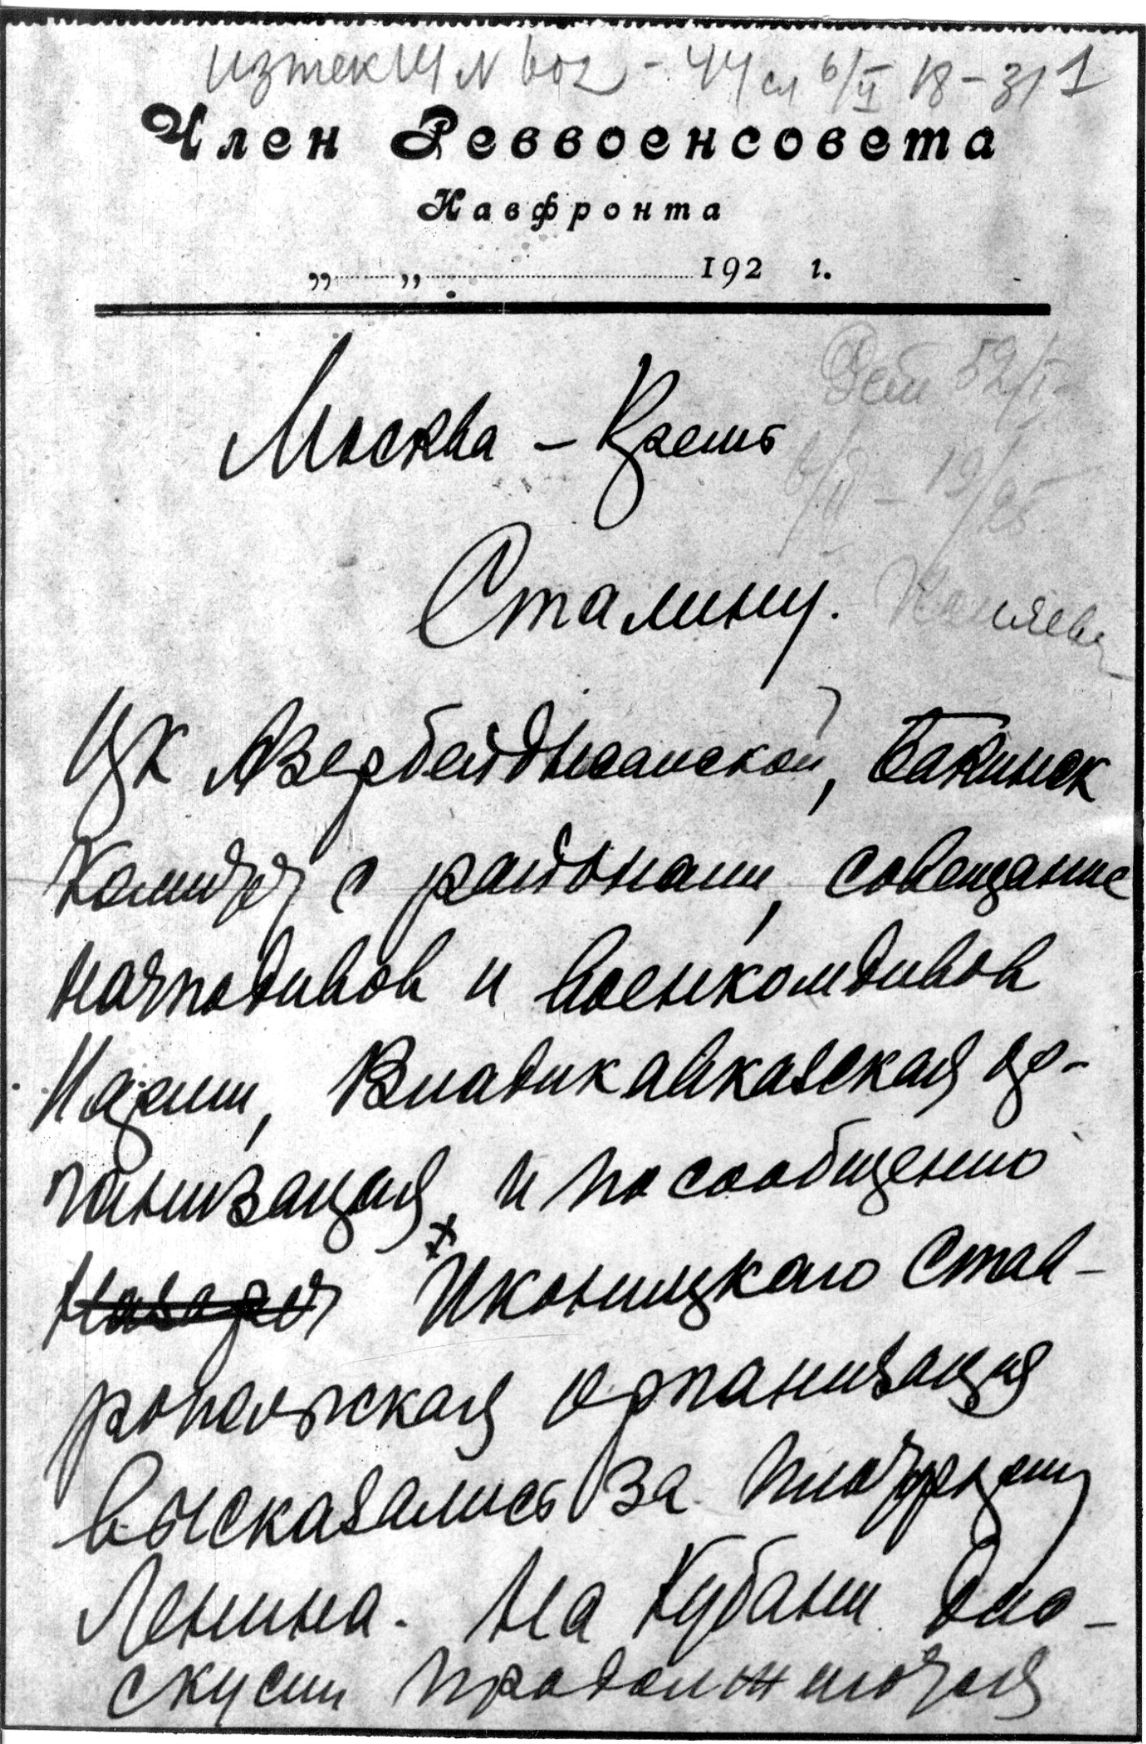 N 602 - 44 сл 6/II 18-31 1
Член Реввоенсовета
Кавфронта
„ „ 192 г.
Москва – Кремль
Сталину.
ЦК Азербейджанской, Бакинск
Комитет с районами, совещание
начподивов и военкомдивов
Армии, Владикавказская ор-
ганизация и по сообщению
Иконицкого Став-
ропольская организация
высказались за платформу
Ленина. На Кубани дис-
куссии продолжаются